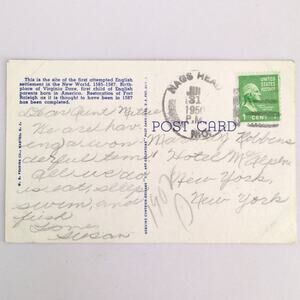 This is the site of the first attempted English
settlement in the New World, 1585-1587. Birth-
place of Virginia Dare, first child of English
parents born in America. Restoration of Fort
Raleigh as it is thought to have been in 1587
has been completed.
NAGS HEAD
31
1950
P.M.
UNITED STATES
1 CENT
POST CARD
Dear Aunt
We are hav-
ing a won-
derful time!
All we do
is eat, sleep
swim, and
fish
Love,
Susan
Robbins
Hotel McAlpin
New York,
New York